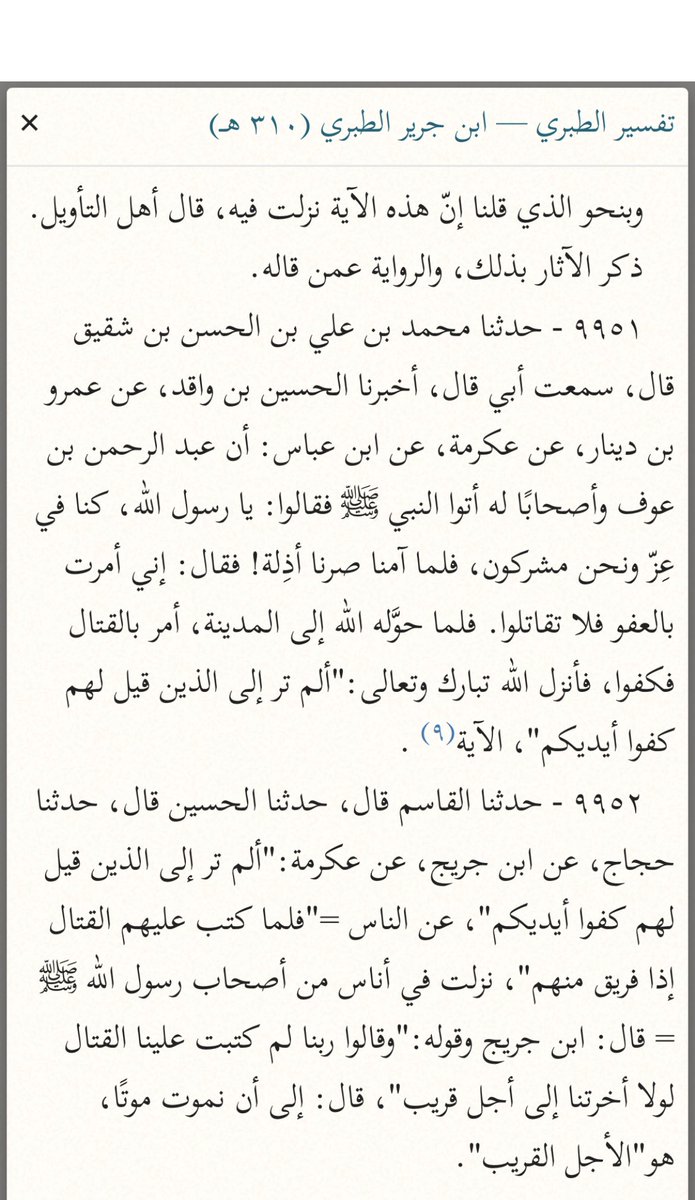 تفسير الطبري — ابن جرير الطبري (٣١٠ هـ) ×
وبنحو الذي قلنا إنّ هذه الآية نزلت فيه، قال أهل التأويل.
ذكر الآثار بذلك، والرواية عمن قاله.
٩٩٥١ - حدثنا محمد بن علي بن الحسن بن شقيق
قال، سمعت أبي قال، أخبرنا الحسين بن واقد، عن عمرو
بن دينار، عن عكرمة، عن ابن عباس: أن عبد الرحمن بن
عوف وأصحابًا له أتوا النبي ﷺ فقالوا: يا رسول الله، كنا في
عِزّ ونحن مشركون، فلما آمنا صرنا أذِلة! فقال: إني أمرت
بالعفو فلا تقاتلوا. فلما حوَّله الله إلى المدينة، أمر بالقتال
فكفوا، فأنزل الله تبارك وتعالى:"ألم تر إلى الذين قيل لهم
كفوا أيديكم"، الآية(٩) .
٩٩٥٢ - حدثنا القاسم قال، حدثنا الحسين قال، حدثنا
حجاج، عن ابن جريج، عن عكرمة:"ألم تر إلى الذين قيل
لهم كفوا أيديكم"، عن الناس ="فلما كتب عليهم القتال
إذا فريق منهم"، نزلت في أناس من أصحاب رسول الله ﷺ
= قال: ابن جريج وقوله:"وقالوا ربنا لم كتبت علينا القتال
لولا أخرتنا إلى أجل قريب"، قال: إلى أن نموت موتًا،
هو"الأجل القريب".